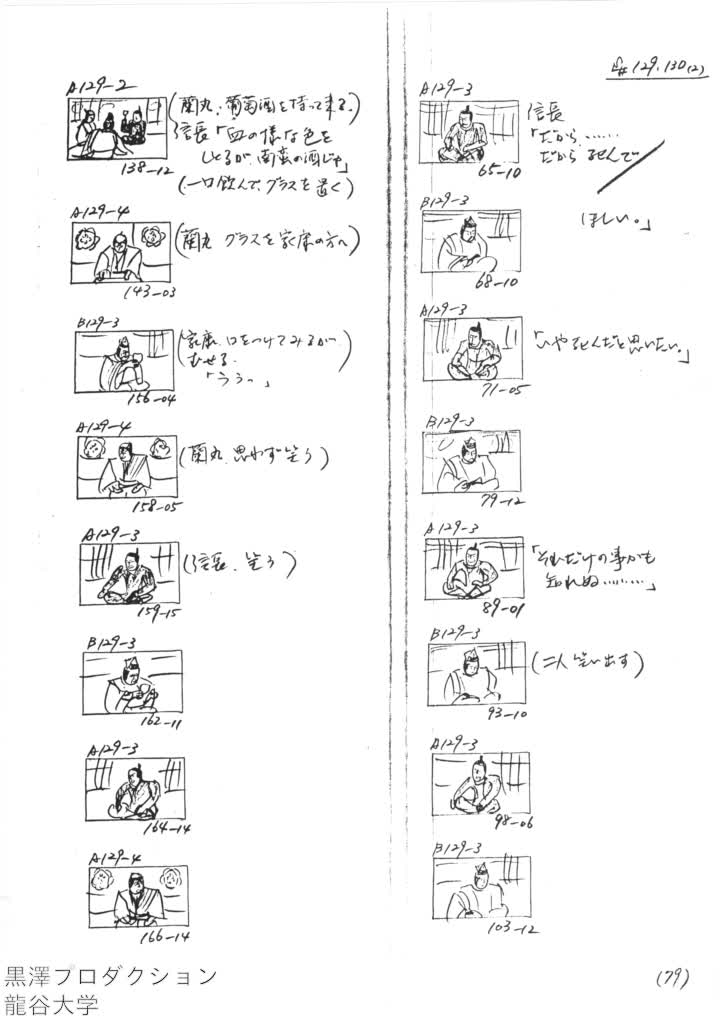 S# 129.130(2)
A129-2
(蘭丸、葡萄酒を持って来る。)
信長「血の様な色を
しとるが、南蛮の酒じゃ」
(一口飲んで、グラスを置く)
138-12
A129-4
(蘭丸 グラスを家康の方へ)
143-03
B129-3
(家康、口をつけてみるが、
むせる。
「うぅっ」)
156-04
A129-4
(蘭丸、思わず笑う)
158-05
A129-3
(信長、笑う)
159-15
B129-3
162-11
A129-3
164-14
A129-4
166-14
A129-3
信長
「だから……
だから 死んで
65-10
B129-3
ほしい。」
68-10
A129-3
「いや死んだと思いたい。」
71-05
B129-3
79-12
A129-3
「それだけの事かも
知れぬ………」
89-01
B129-3
(二人 笑い出す)
93-10
A129-3
98-06
B129-3
103-12
(79)
黒澤プロダクション
龍谷大学